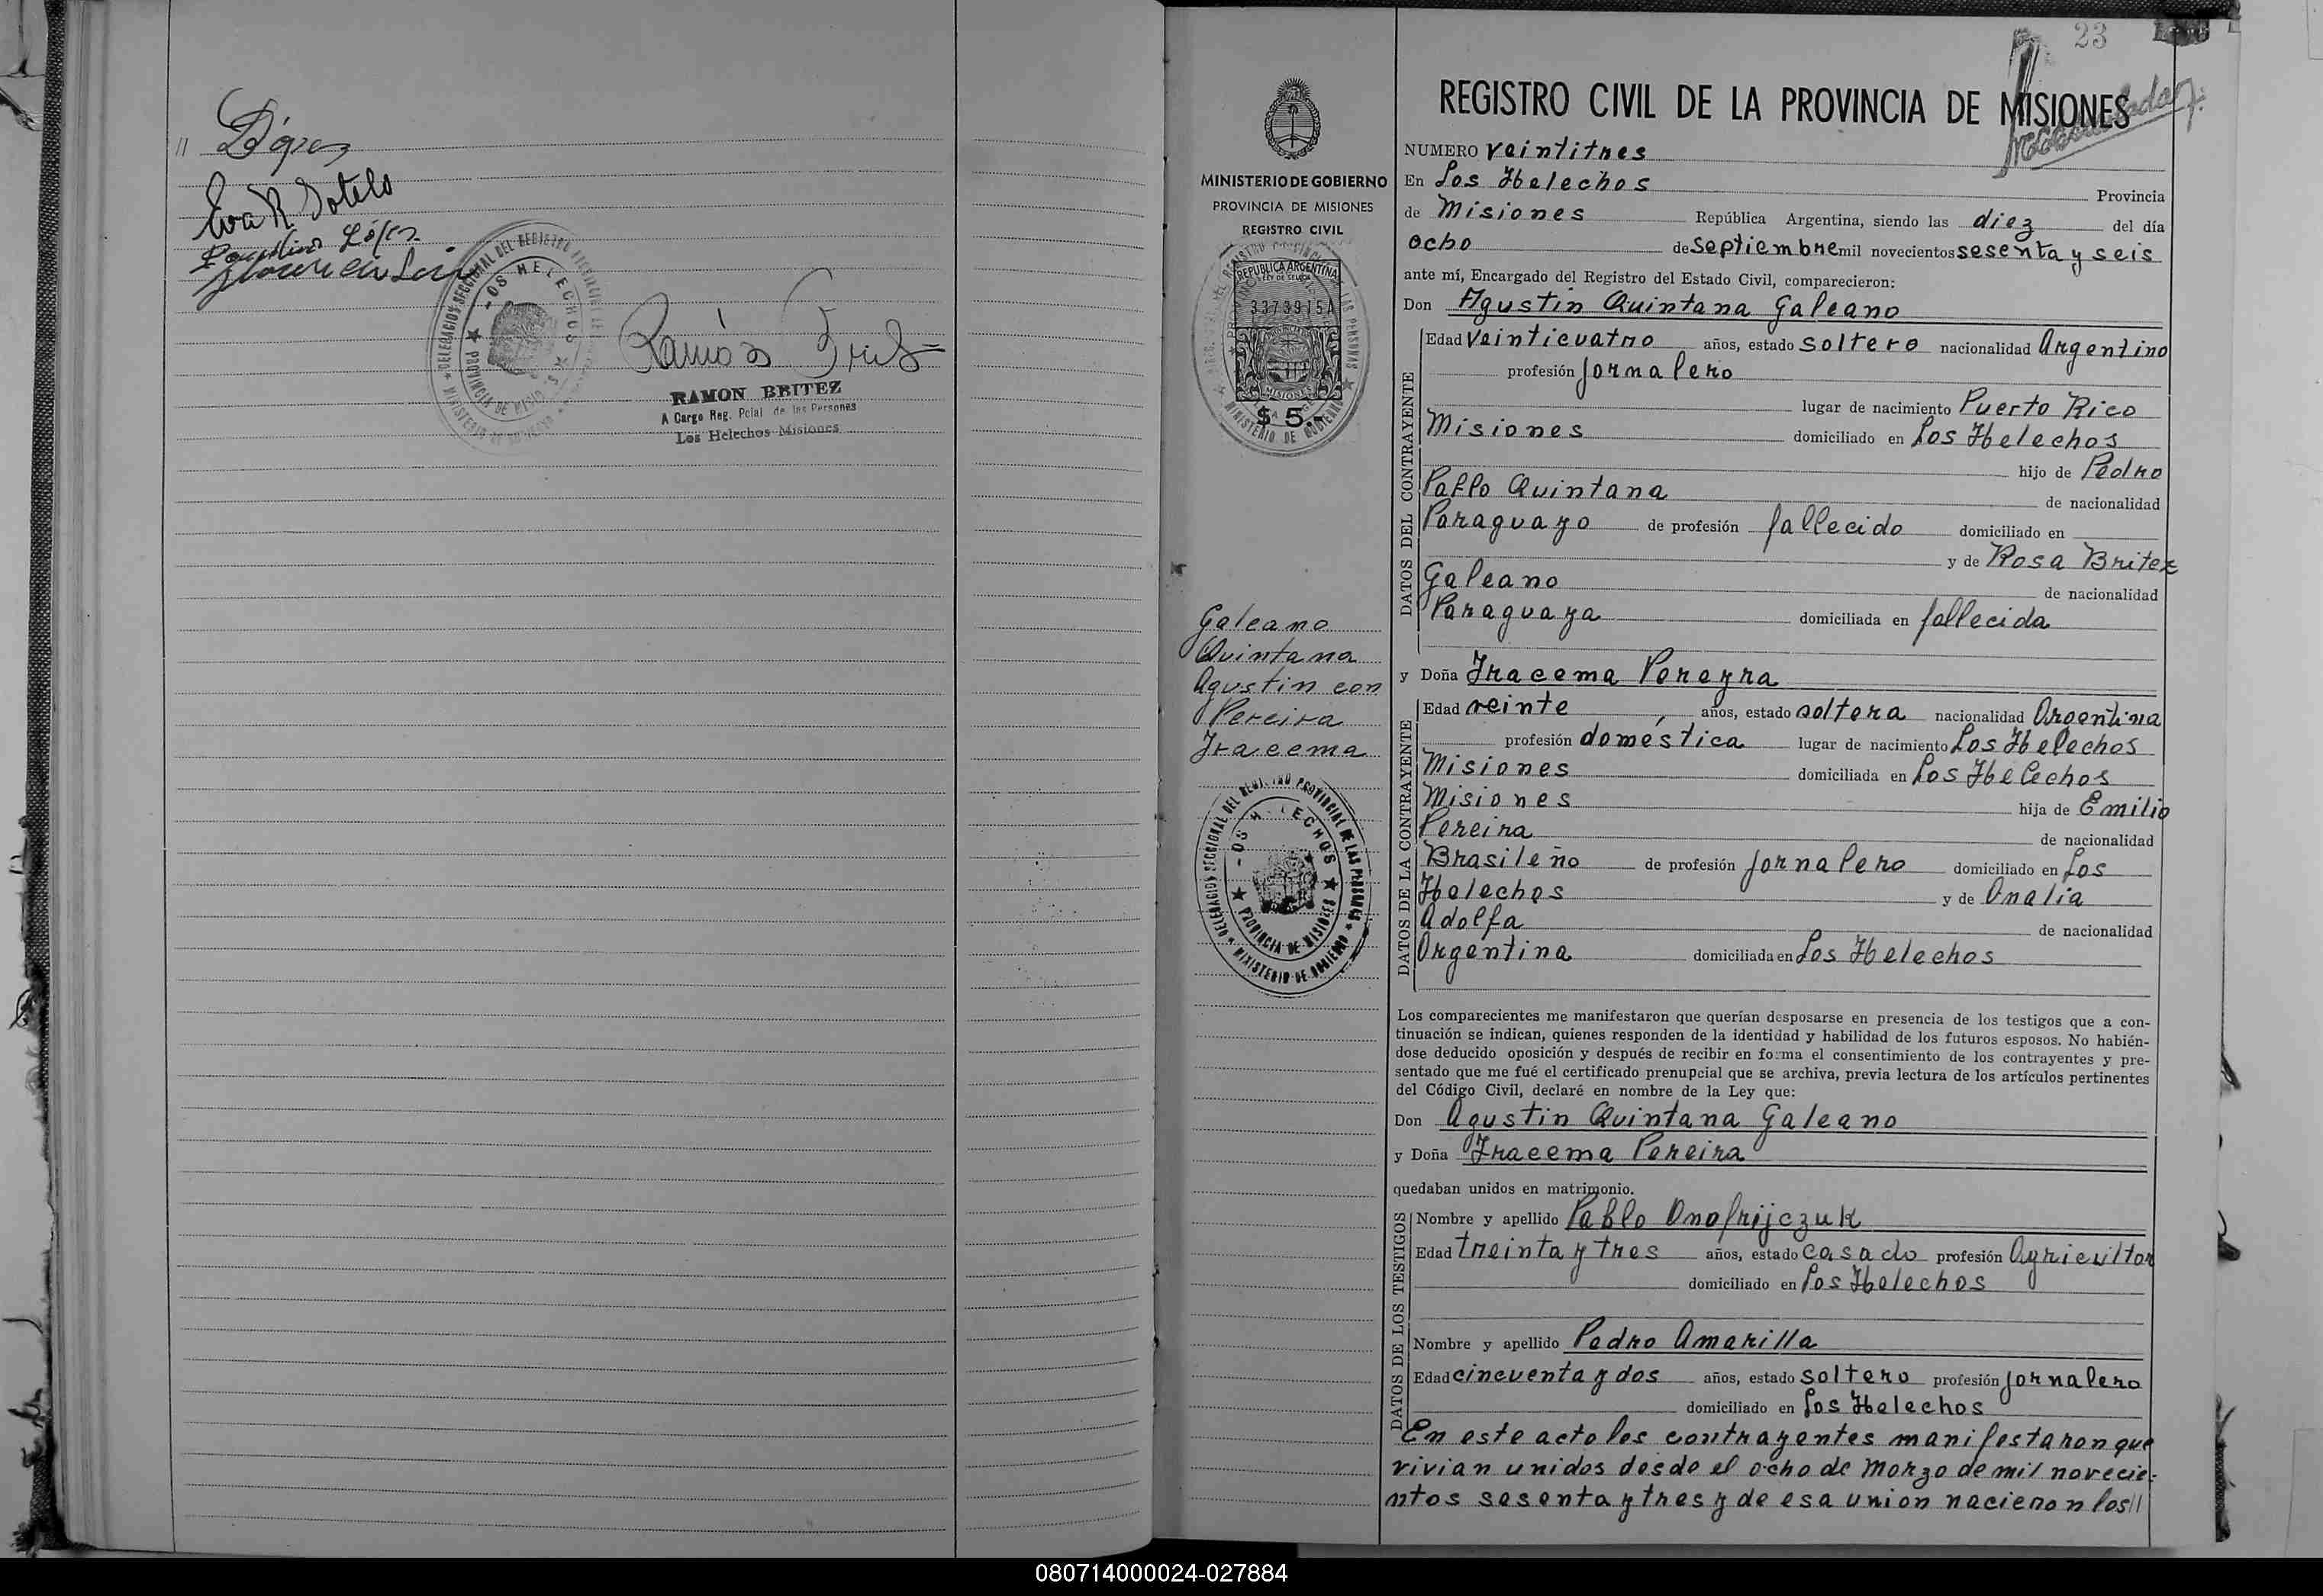 // López
Eva R Sotelo
Paulino López
RAMON BRITEZ
A Cargo Reg. Pcial de las Personas
Los Helechos Misiones
23
MINISTERIO DE GOBIERNO
PROVINCIA DE MISIONES
REGISTRO CIVIL
REPUBLICA ARGENTINA
3373915A
MISIONES
$ 5.-
Galeano
Quintana
Agustin con
Pereira
Iracema
DELEGACION SECCIONAL DEL REGISTRO PROVINCIAL DE LAS PERSONAS
LOS HELECHOS
PROVINCIA DE MISIONES
MINISTERIO DE GOBIERNO
REGISTRO CIVIL DE LA PROVINCIA DE MISIONES
NUMERO veintitres
En Los Helechos Provincia
de Misiones República Argentina, siendo las diez del día
ocho de septiembre mil novecientos sesenta y seis
ante mí, Encargado del Registro del Estado Civil, comparecieron:
Don Agustin Quintana Galeano
DATOS DEL CONTRAYENTE
Edad veinticuatro años, estado soltero nacionalidad Argentino
profesión Jornalero
lugar de nacimiento Puerto Rico
Misiones domiciliado en Los Helechos
hijo de Pedro
Pablo Quintana de nacionalidad
Paraguayo de profesión fallecido domiciliado en
y de Rosa Britez
Galeano de nacionalidad
Paraguaya domiciliada en fallecida
y Doña Iracema Pereyra
DATOS DE LA CONTRAYENTE
Edad veinte años, estado soltera nacionalidad Argentina
profesión doméstica lugar de nacimiento Los Helechos
Misiones domiciliada en Los Helechos
Misiones hija de Emilio
Pereira de nacionalidad
Brasileño de profesión Jornalero domiciliado en Los
Helechos y de Analia
Adolfa de nacionalidad
Argentina domiciliada en Los Helechos
Los comparecientes me manifestaron que querían desposarse en presencia de los testigos que a con-
tinuación se indican, quienes responden de la identidad y habilidad de los futuros esposos. No habién-
dose deducido oposición y después de recibir en forma el consentimiento de los contrayentes y pre-
sentado que me fué el certificado prenupcial que se archiva, previa lectura de los artículos pertinentes
del Código Civil, declaré en nombre de la Ley que:
Don Agustin Quintana Galeano
y Doña Iracema Pereira
quedaban unidos en matrimonio.
DATOS DE LOS TESTIGOS
Nombre y apellido Pablo Onofrijczuk
Edad treinta y tres años, estado casado profesión Agricultor
domiciliado en Los Helechos
Nombre y apellido Pedro Amarilla
Edad cincuenta y dos años, estado soltero profesión Jornalero
domiciliado en Los Helechos
En este acto los contrayentes manifestaron que
vivian unidos desde el ocho de Marzo de mil novecie-
ntos sesenta y tres y de esa union nacieron los//
080714000024-027884